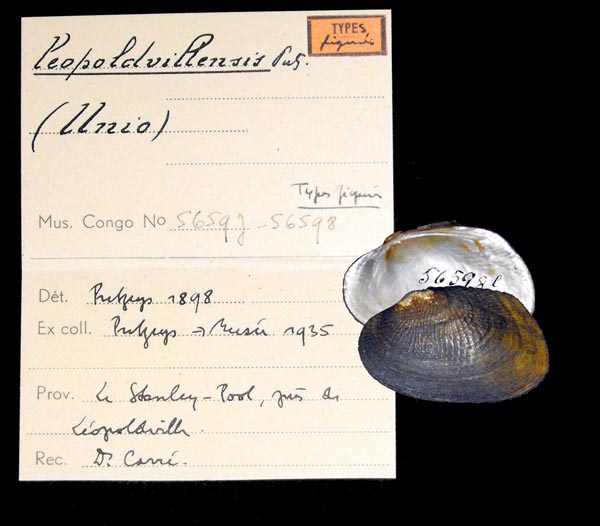 TYPES
figurés
Leopoldvillensis Putz.
(Unio)
Types figurés
Mus. Congo No 56597-56598
Dét. Putzeys 1898
Ex coll. Putzeys → Musée 1935
Prov. Le Stanley-Pool, près de
Léopoldville.
Rec. Dr Carré.
56598